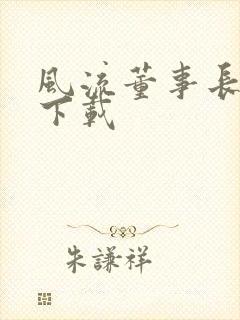 風流董事長
下載
朱謙祥